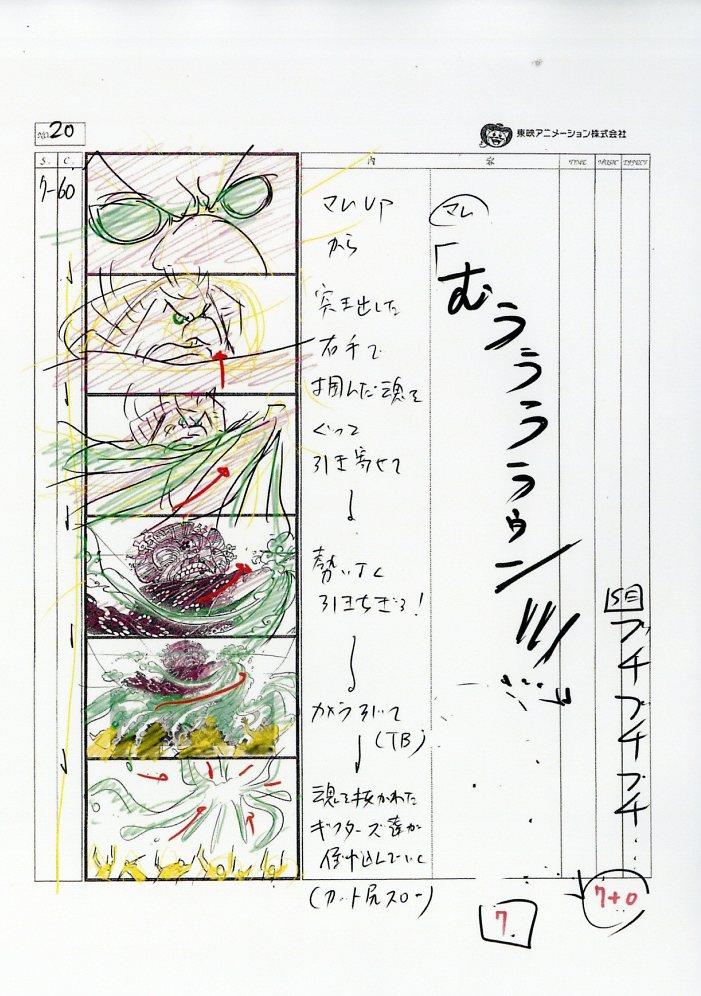 NO. 20
東映アニメーション株式会社
S. C. 内 容 TIME MUSIC EFFECT
7-60
マムUP
から
突き出した
右手で
掴んだ魂を
ぐっと
引き寄せて
勢いよく
引きちぎる!
カメラ引いて
(TB)
魂を抜かれた
ギフターズ達が
倒れ込んでいく
(カット尻スロー)
マム
「むうううううゥン///
SE
ブチブチブチ…
7+0
7.